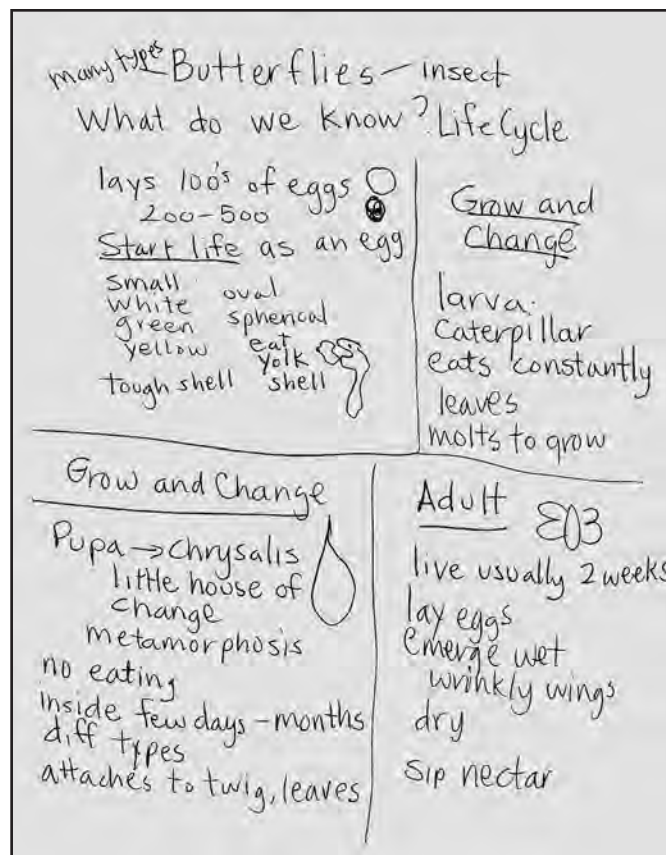 many types – Butterflies – insect
What do we know? Life Cycle
lays 100's of eggs
200-500
Start life as an egg
small
white oval
green spherical
yellow eat
yolk
tough shell shell
Grow and
Change
larva.
Caterpillar
eats constantly
leaves
molts to grow
Grow and Change
Pupa → Chrysalis
little house of
change
metamorphosis
no eating
inside few days - months
diff types
attaches to twig, leaves
Adult
live usually 2 weeks
lay eggs
emerge wet
wrinkly wings
dry
sip nectar